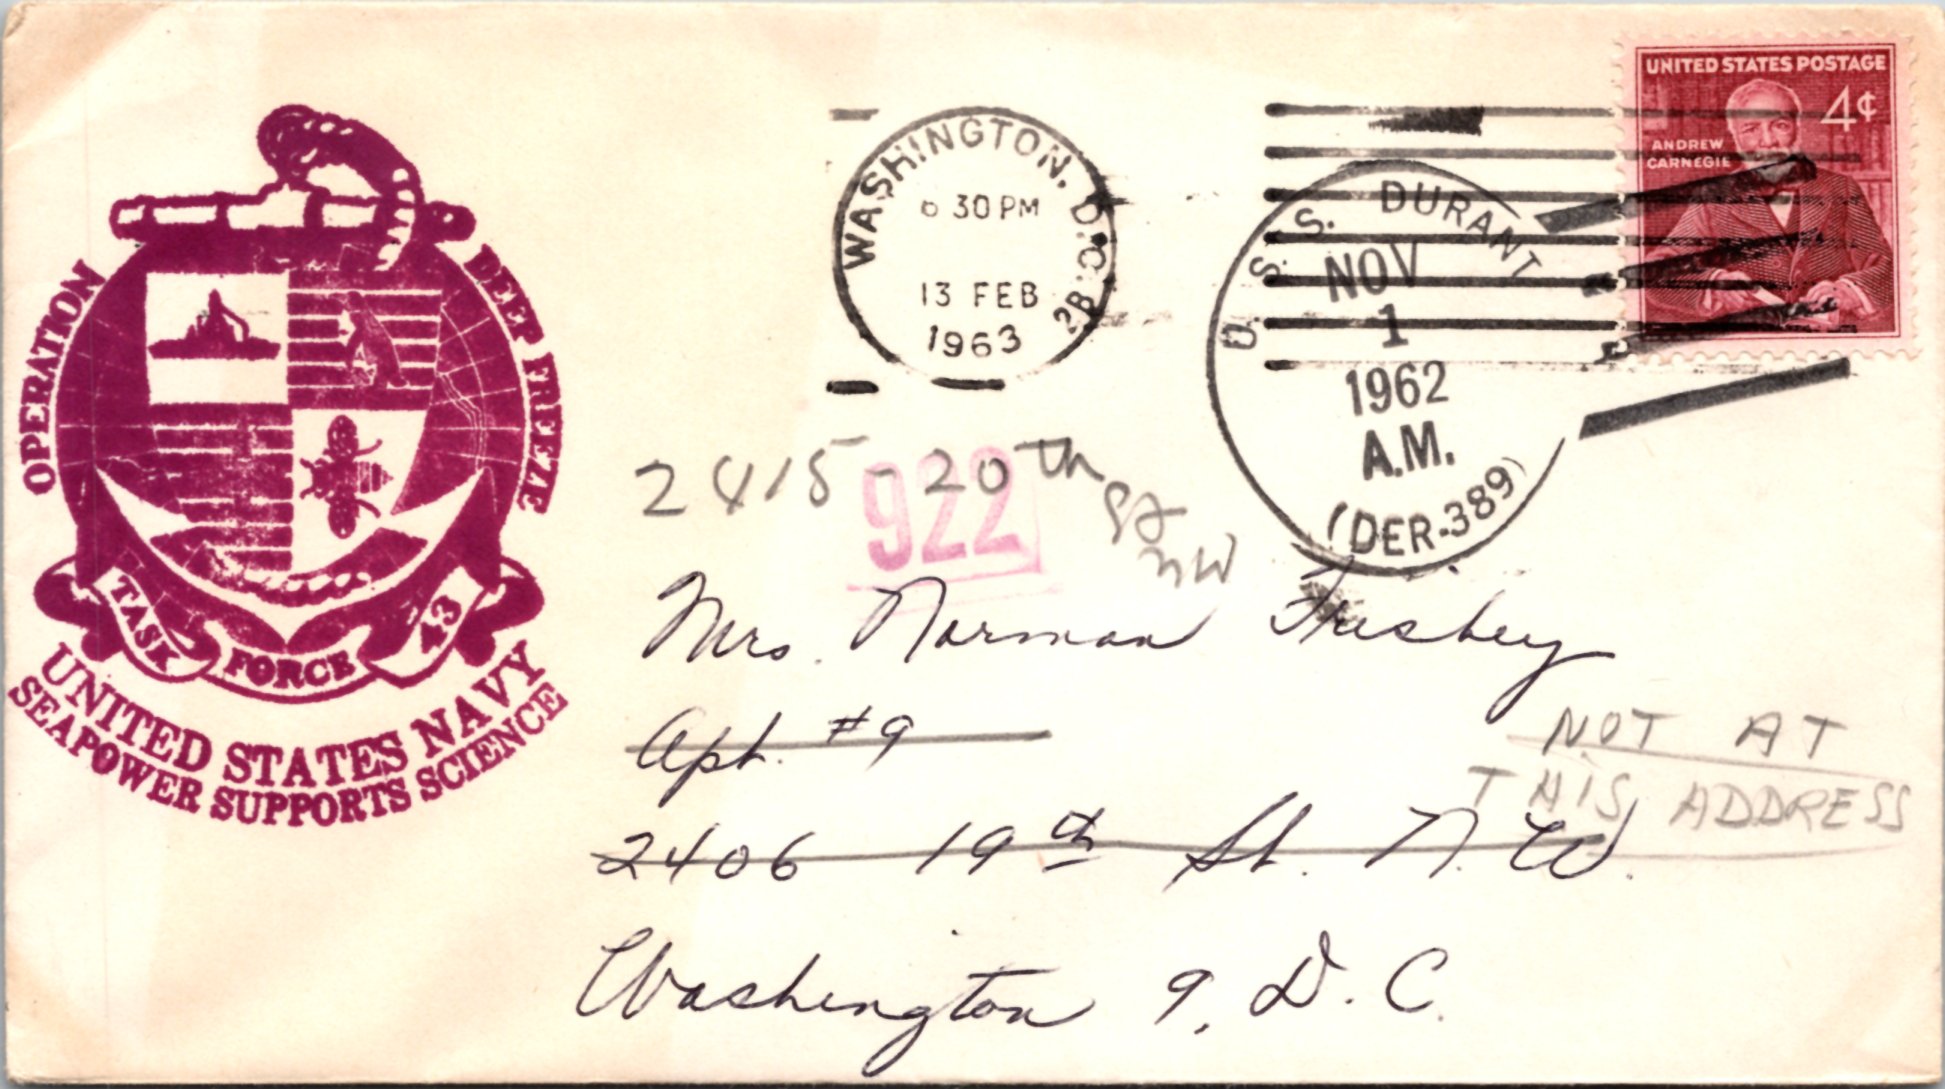 OPERATION DEEP FREEZE
TASK FORCE 43
UNITED STATES NAVY
SEAPOWER SUPPORTS SCIENCE
WASHINGTON, D.C. 2B
6 30 PM
13 FEB
1963
U.S.S. DURANT
NOV
1
1962
A.M.
(DER-389)
UNITED STATES POSTAGE
4¢
ANDREW
CARNEGIE
2415 - 20th St
NW
922
Mrs. Norman Frisbey
Apt. #9
NOT AT
THIS ADDRESS
2406 19th St. N.W.
Washington 9, D.C.